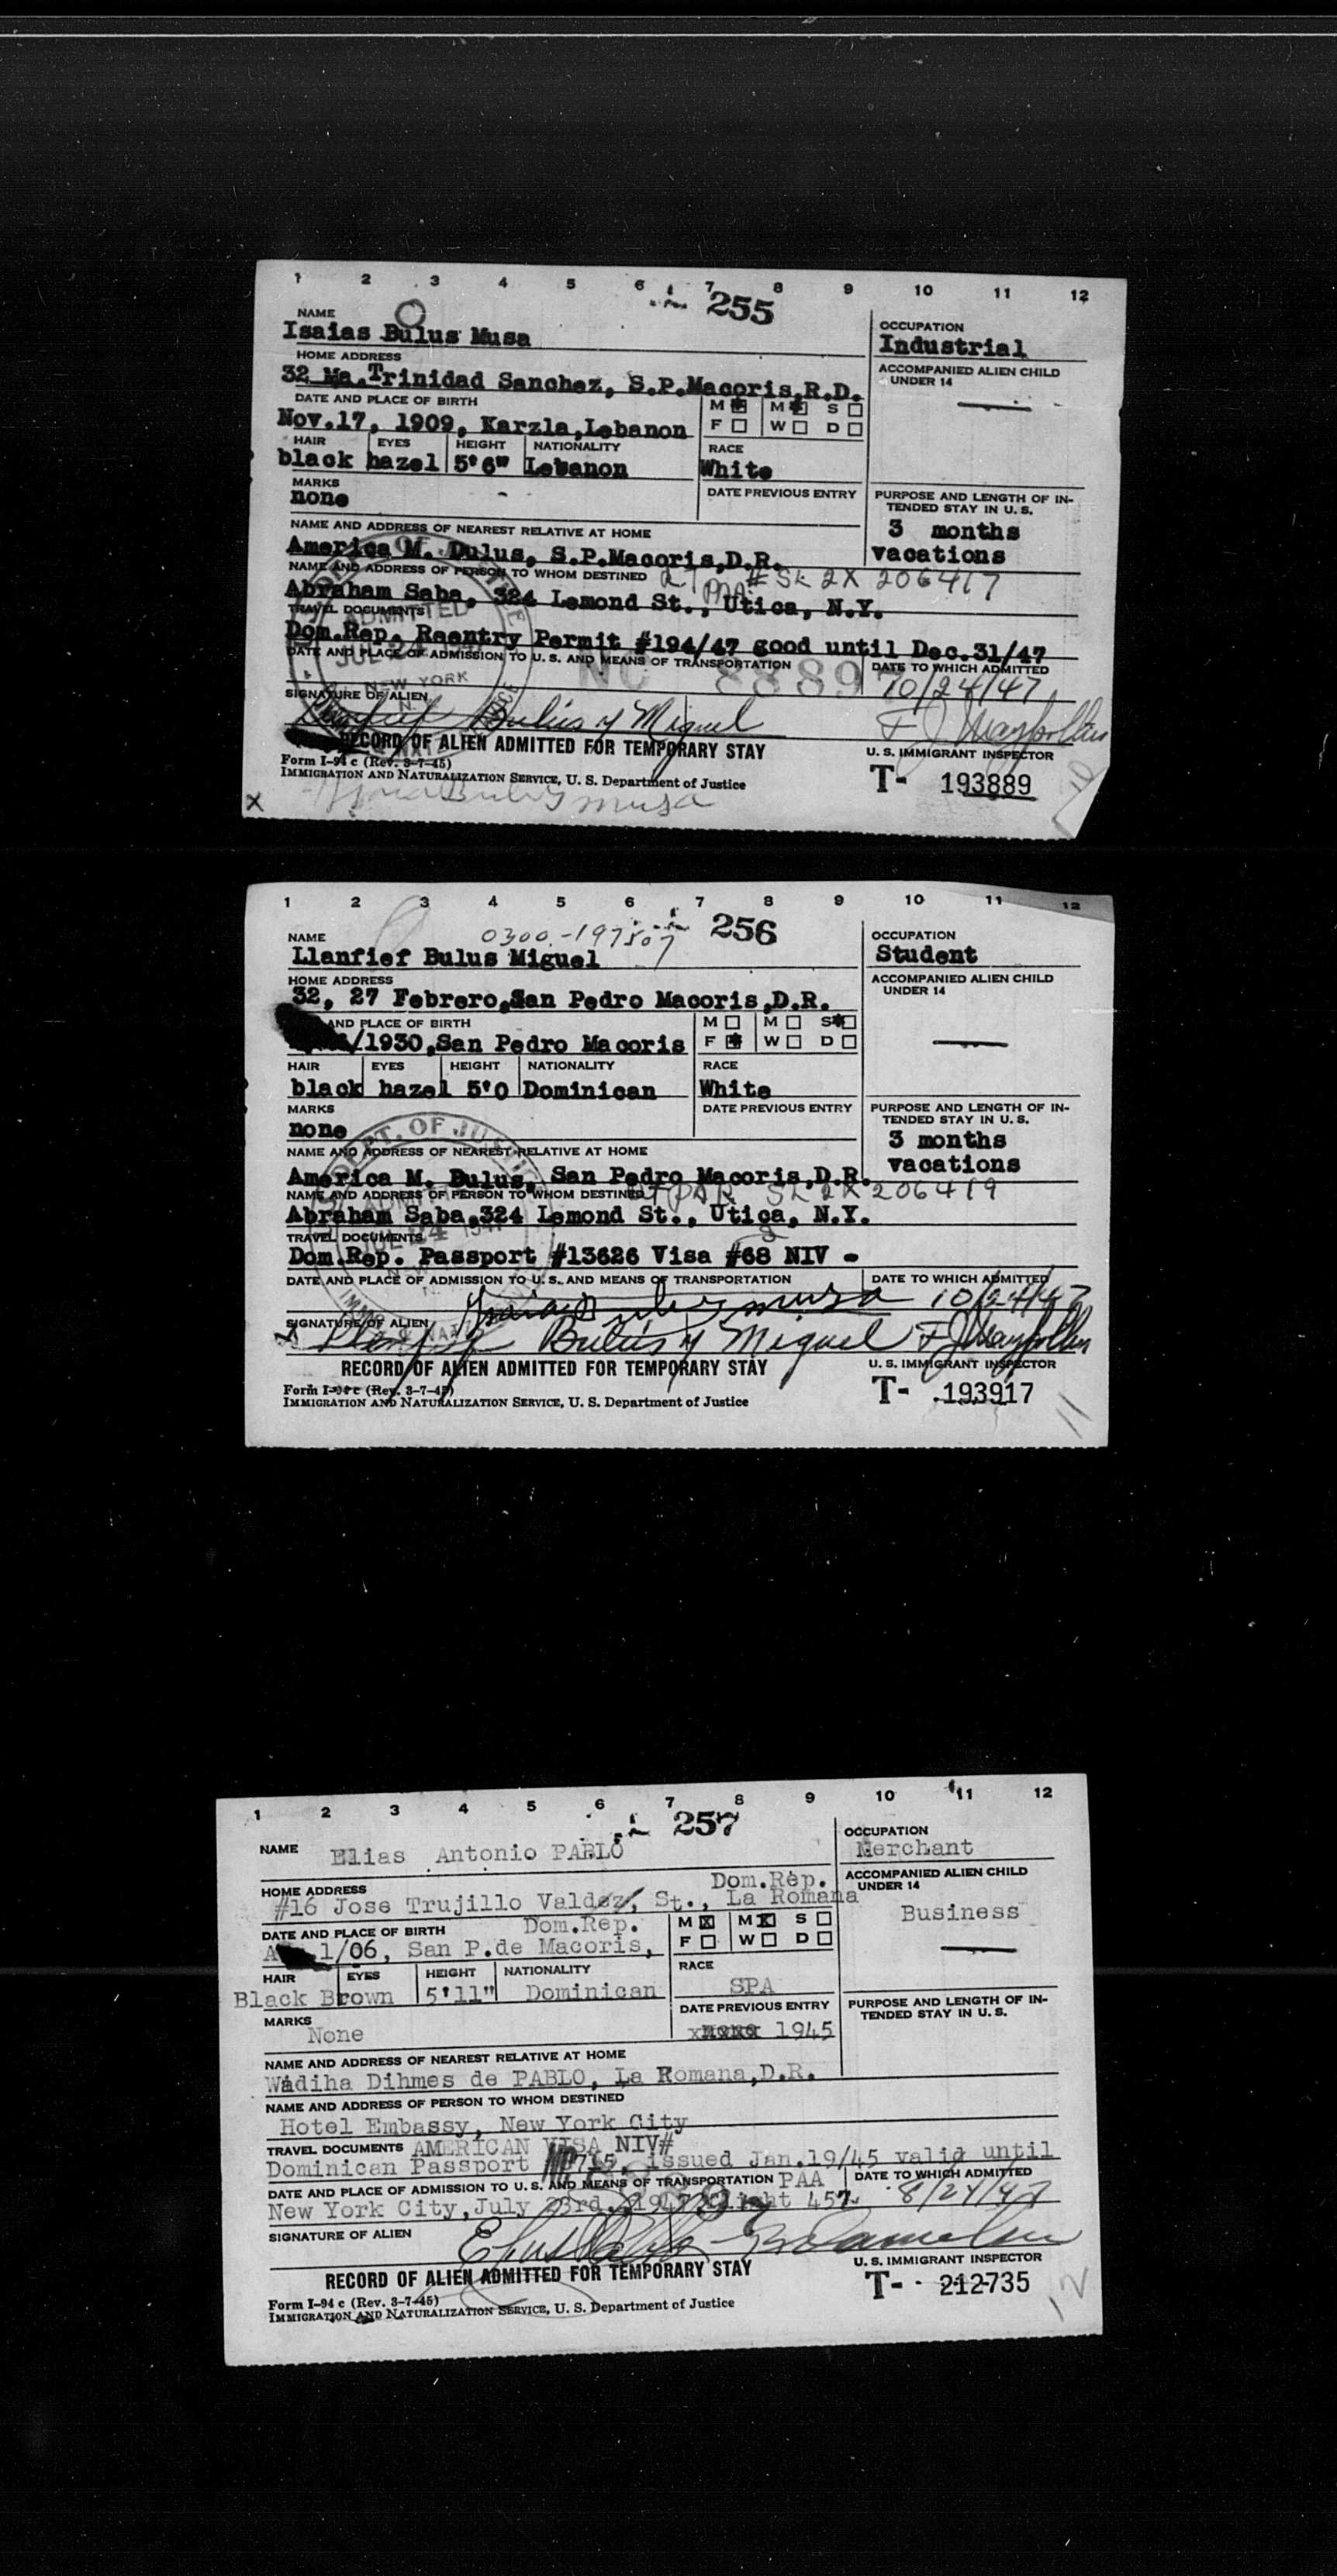 1 2 3 4 5 6 7 8 9 10 11 12
255
NAME
Isaias Bulus Musa
OCCUPATION
Industrial
HOME ADDRESS
32 Ma.Trinidad Sanchez, S.P.Macoris,R.D.
ACCOMPANIED ALIEN CHILD
UNDER 14
DATE AND PLACE OF BIRTH
M M S
Nov.17, 1909, Karzla,Lebanon
F W D
HAIR EYES HEIGHT NATIONALITY RACE
black hazel 5'6" Lebanon White
MARKS
none
DATE PREVIOUS ENTRY
PURPOSE AND LENGTH OF IN-
TENDED STAY IN U. S.
3 months
vacations
NAME AND ADDRESS OF NEAREST RELATIVE AT HOME
America M. Bulus, S.P.Macoris,D.R.
NAME AND ADDRESS OF PERSON TO WHOM DESTINED
# SL 2X 206417
Abraham Saba, 324 Lemond St., Utica, N.Y.
TRAVEL DOCUMENTS
ADMITTED
Dom.Rep. Reentry Permit #194/47 good until Dec.31/47
DATE AND PLACE OF ADMISSION TO U. S. AND MEANS OF TRANSPORTATION
DATE TO WHICH ADMITTED
JUL 24
NEW YORK
10/24/47
SIGNATURE OF ALIEN
Bulus y Miguel
RECORD OF ALIEN ADMITTED FOR TEMPORARY STAY
U. S. IMMIGRANT INSPECTOR
Form I-94 c (Rev. 3-7-45)
IMMIGRATION AND NATURALIZATION SERVICE, U. S. Department of Justice
T- 193889
Bulus Musa
X
1 2 3 4 5 6 7 8 9 10 11 12
256
0300-197507
NAME
Llanfief Bulus Miguel
OCCUPATION
Student
HOME ADDRESS
32, 27 Febrero,San Pedro Macoris,D.R.
ACCOMPANIED ALIEN CHILD
UNDER 14
AND PLACE OF BIRTH
M M S
/1930,San Pedro Macoris
F W D
HAIR EYES HEIGHT NATIONALITY RACE
black hazel 5'0 Dominican White
MARKS
none
DATE PREVIOUS ENTRY
PURPOSE AND LENGTH OF IN-
TENDED STAY IN U. S.
3 months
vacations
DEPT. OF JUSTICE
NAME AND ADDRESS OF NEAREST RELATIVE AT HOME
America M. Bulus, San Pedro Macoris,D.R.
NAME AND ADDRESS OF PERSON TO WHOM DESTINED
SL 2X 206419
Abraham Saba,324 Lemond St., Utica, N.Y.
TRAVEL DOCUMENTS
JUL 24
Dom.Rep. Passport #13626 Visa #68 NIV -
DATE AND PLACE OF ADMISSION TO U. S. AND MEANS OF TRANSPORTATION
DATE TO WHICH ADMITTED
Isaias Bulus Musa 10/24/47
SIGNATURE OF ALIEN
Bulus y Miguel
RECORD OF ALIEN ADMITTED FOR TEMPORARY STAY
U. S. IMMIGRANT INSPECTOR
Form I-94 c (Rev. 3-7-45)
IMMIGRATION AND NATURALIZATION SERVICE, U. S. Department of Justice
T- 193917
1 2 3 4 5 6 7 8 9 10 11 12
257
NAME Elias Antonio PABLO
OCCUPATION
Merchant
HOME ADDRESS
Dom.Rep.
#16 Jose Trujillo Valdez, St., La Romana
ACCOMPANIED ALIEN CHILD
UNDER 14
Business
DATE AND PLACE OF BIRTH Dom.Rep.
M M S
1/06, San P.de Macoris,
F W D
HAIR EYES HEIGHT NATIONALITY RACE
Black Brown 5'11" Dominican SPA
MARKS
None
DATE PREVIOUS ENTRY
1945
PURPOSE AND LENGTH OF IN-
TENDED STAY IN U. S.
NAME AND ADDRESS OF NEAREST RELATIVE AT HOME
Wadiha Dihmes de PABLO, La Romana,D.R.
NAME AND ADDRESS OF PERSON TO WHOM DESTINED
Hotel Embassy, New York City
TRAVEL DOCUMENTS AMERICAN VISA NIV#
Dominican Passport issued Jan.19/45 valid until
DATE AND PLACE OF ADMISSION TO U. S. AND MEANS OF TRANSPORTATION PAA
DATE TO WHICH ADMITTED
New York City,July 23rd. 1947 Flight 457
8/24/47
SIGNATURE OF ALIEN
RECORD OF ALIEN ADMITTED FOR TEMPORARY STAY
U. S. IMMIGRANT INSPECTOR
Form I-94 c (Rev. 3-7-45)
IMMIGRATION AND NATURALIZATION SERVICE, U. S. Department of Justice
T- 212735